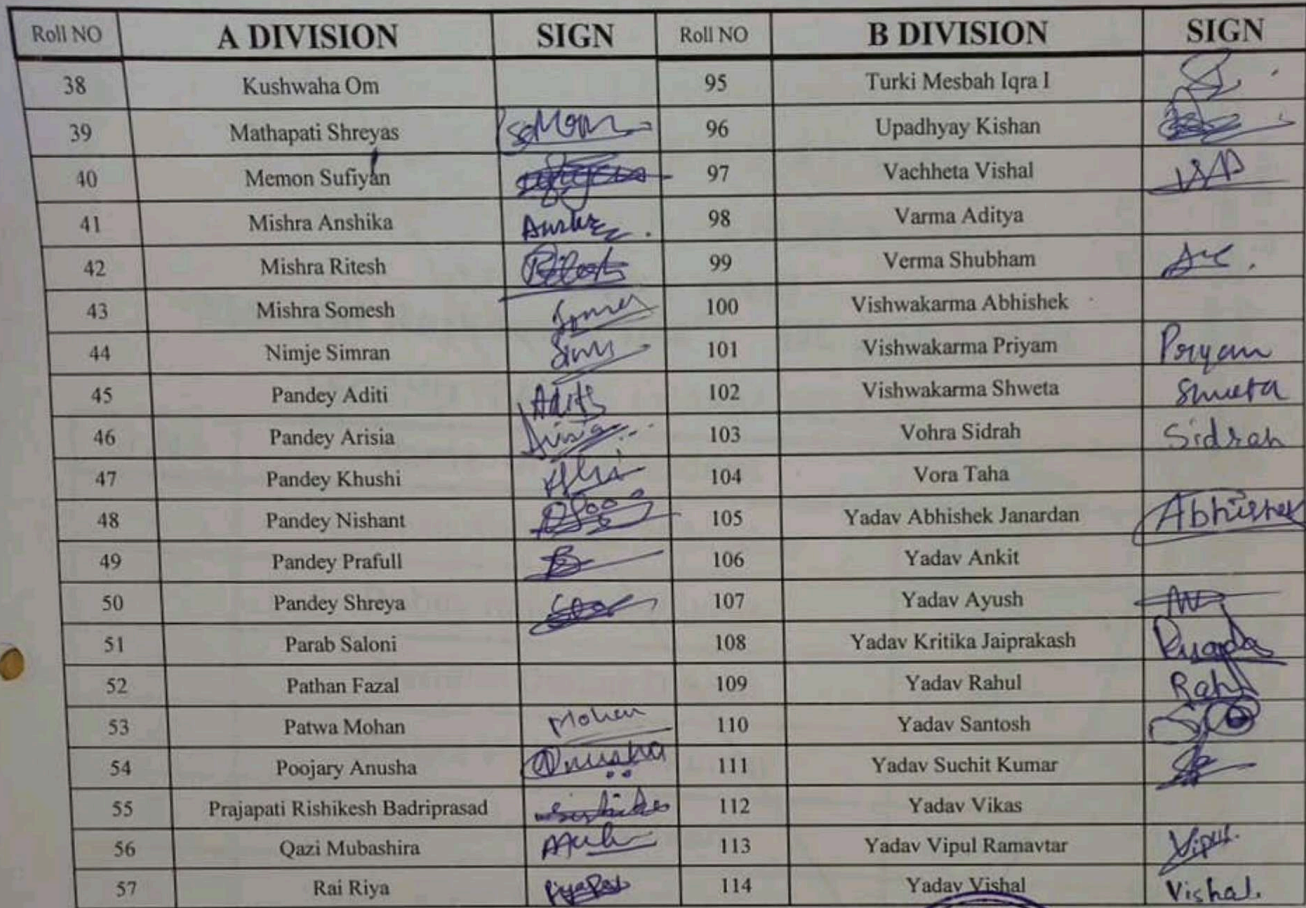 Roll NO A DIVISION SIGN Roll NO B DIVISION SIGN
38 Kushwaha Om 95 Turki Mesbah Iqra I
39 Mathapati Shreyas 96 Upadhyay Kishan
40 Memon Sufiyan 97 Vachheta Vishal
41 Mishra Anshika 98 Varma Aditya
42 Mishra Ritesh 99 Verma Shubham
43 Mishra Somesh 100 Vishwakarma Abhishek
44 Nimje Simran 101 Vishwakarma Priyam Priyam
45 Pandey Aditi Aditi 102 Vishwakarma Shweta Shweta
46 Pandey Arisia Arisia 103 Vohra Sidrah Sidrah
47 Pandey Khushi 104 Vora Taha
48 Pandey Nishant 105 Yadav Abhishek Janardan Abhishek
49 Pandey Prafull 106 Yadav Ankit
50 Pandey Shreya 107 Yadav Ayush
51 Parab Saloni 108 Yadav Kritika Jaiprakash
52 Pathan Fazal 109 Yadav Rahul
53 Patwa Mohan Mohan 110 Yadav Santosh
54 Poojary Anusha Anusha 111 Yadav Suchit Kumar
55 Prajapati Rishikesh Badriprasad 112 Yadav Vikas
56 Qazi Mubashira 113 Yadav Vipul Ramavtar Vipul.
57 Rai Riya 114 Yadav Vishal Vishal.